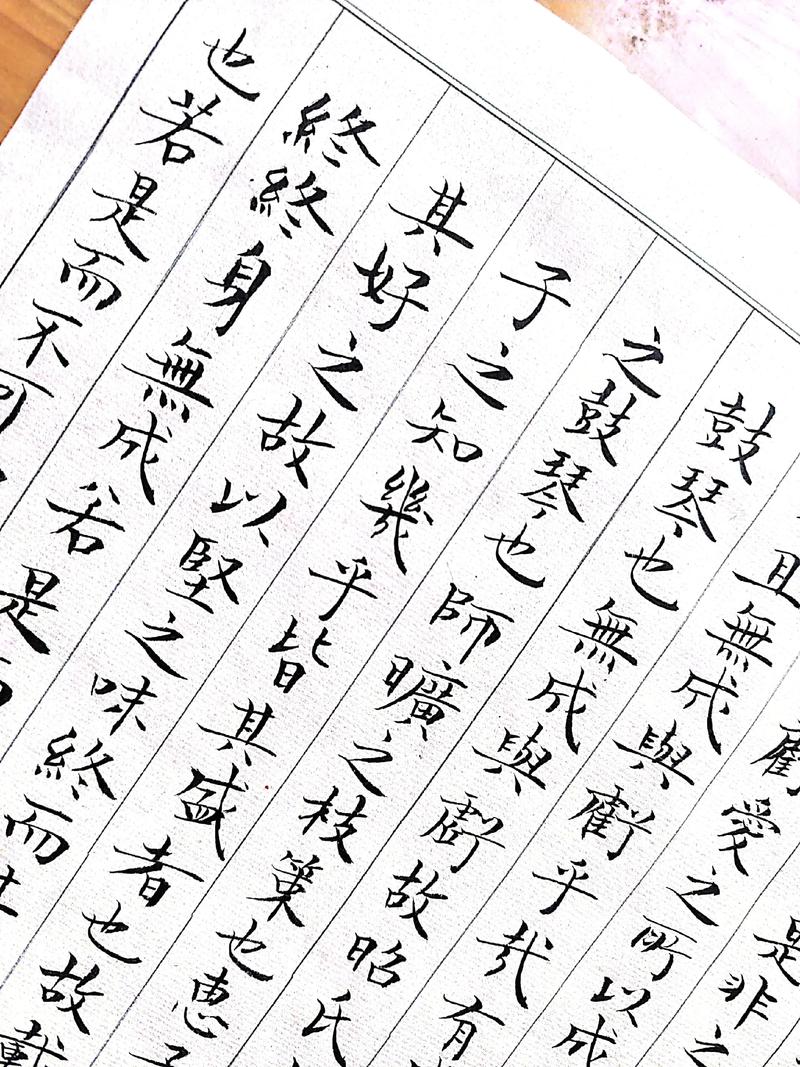 是非之
虧愛之所以成
且無成與虧乎哉有
鼓琴也無成與虧故昭氏
之鼓琴也師曠之枝策也惠子
子之知幾乎皆其盛者也故載
其好之故以堅之味終而
終終身無成若是而
也若是而不可